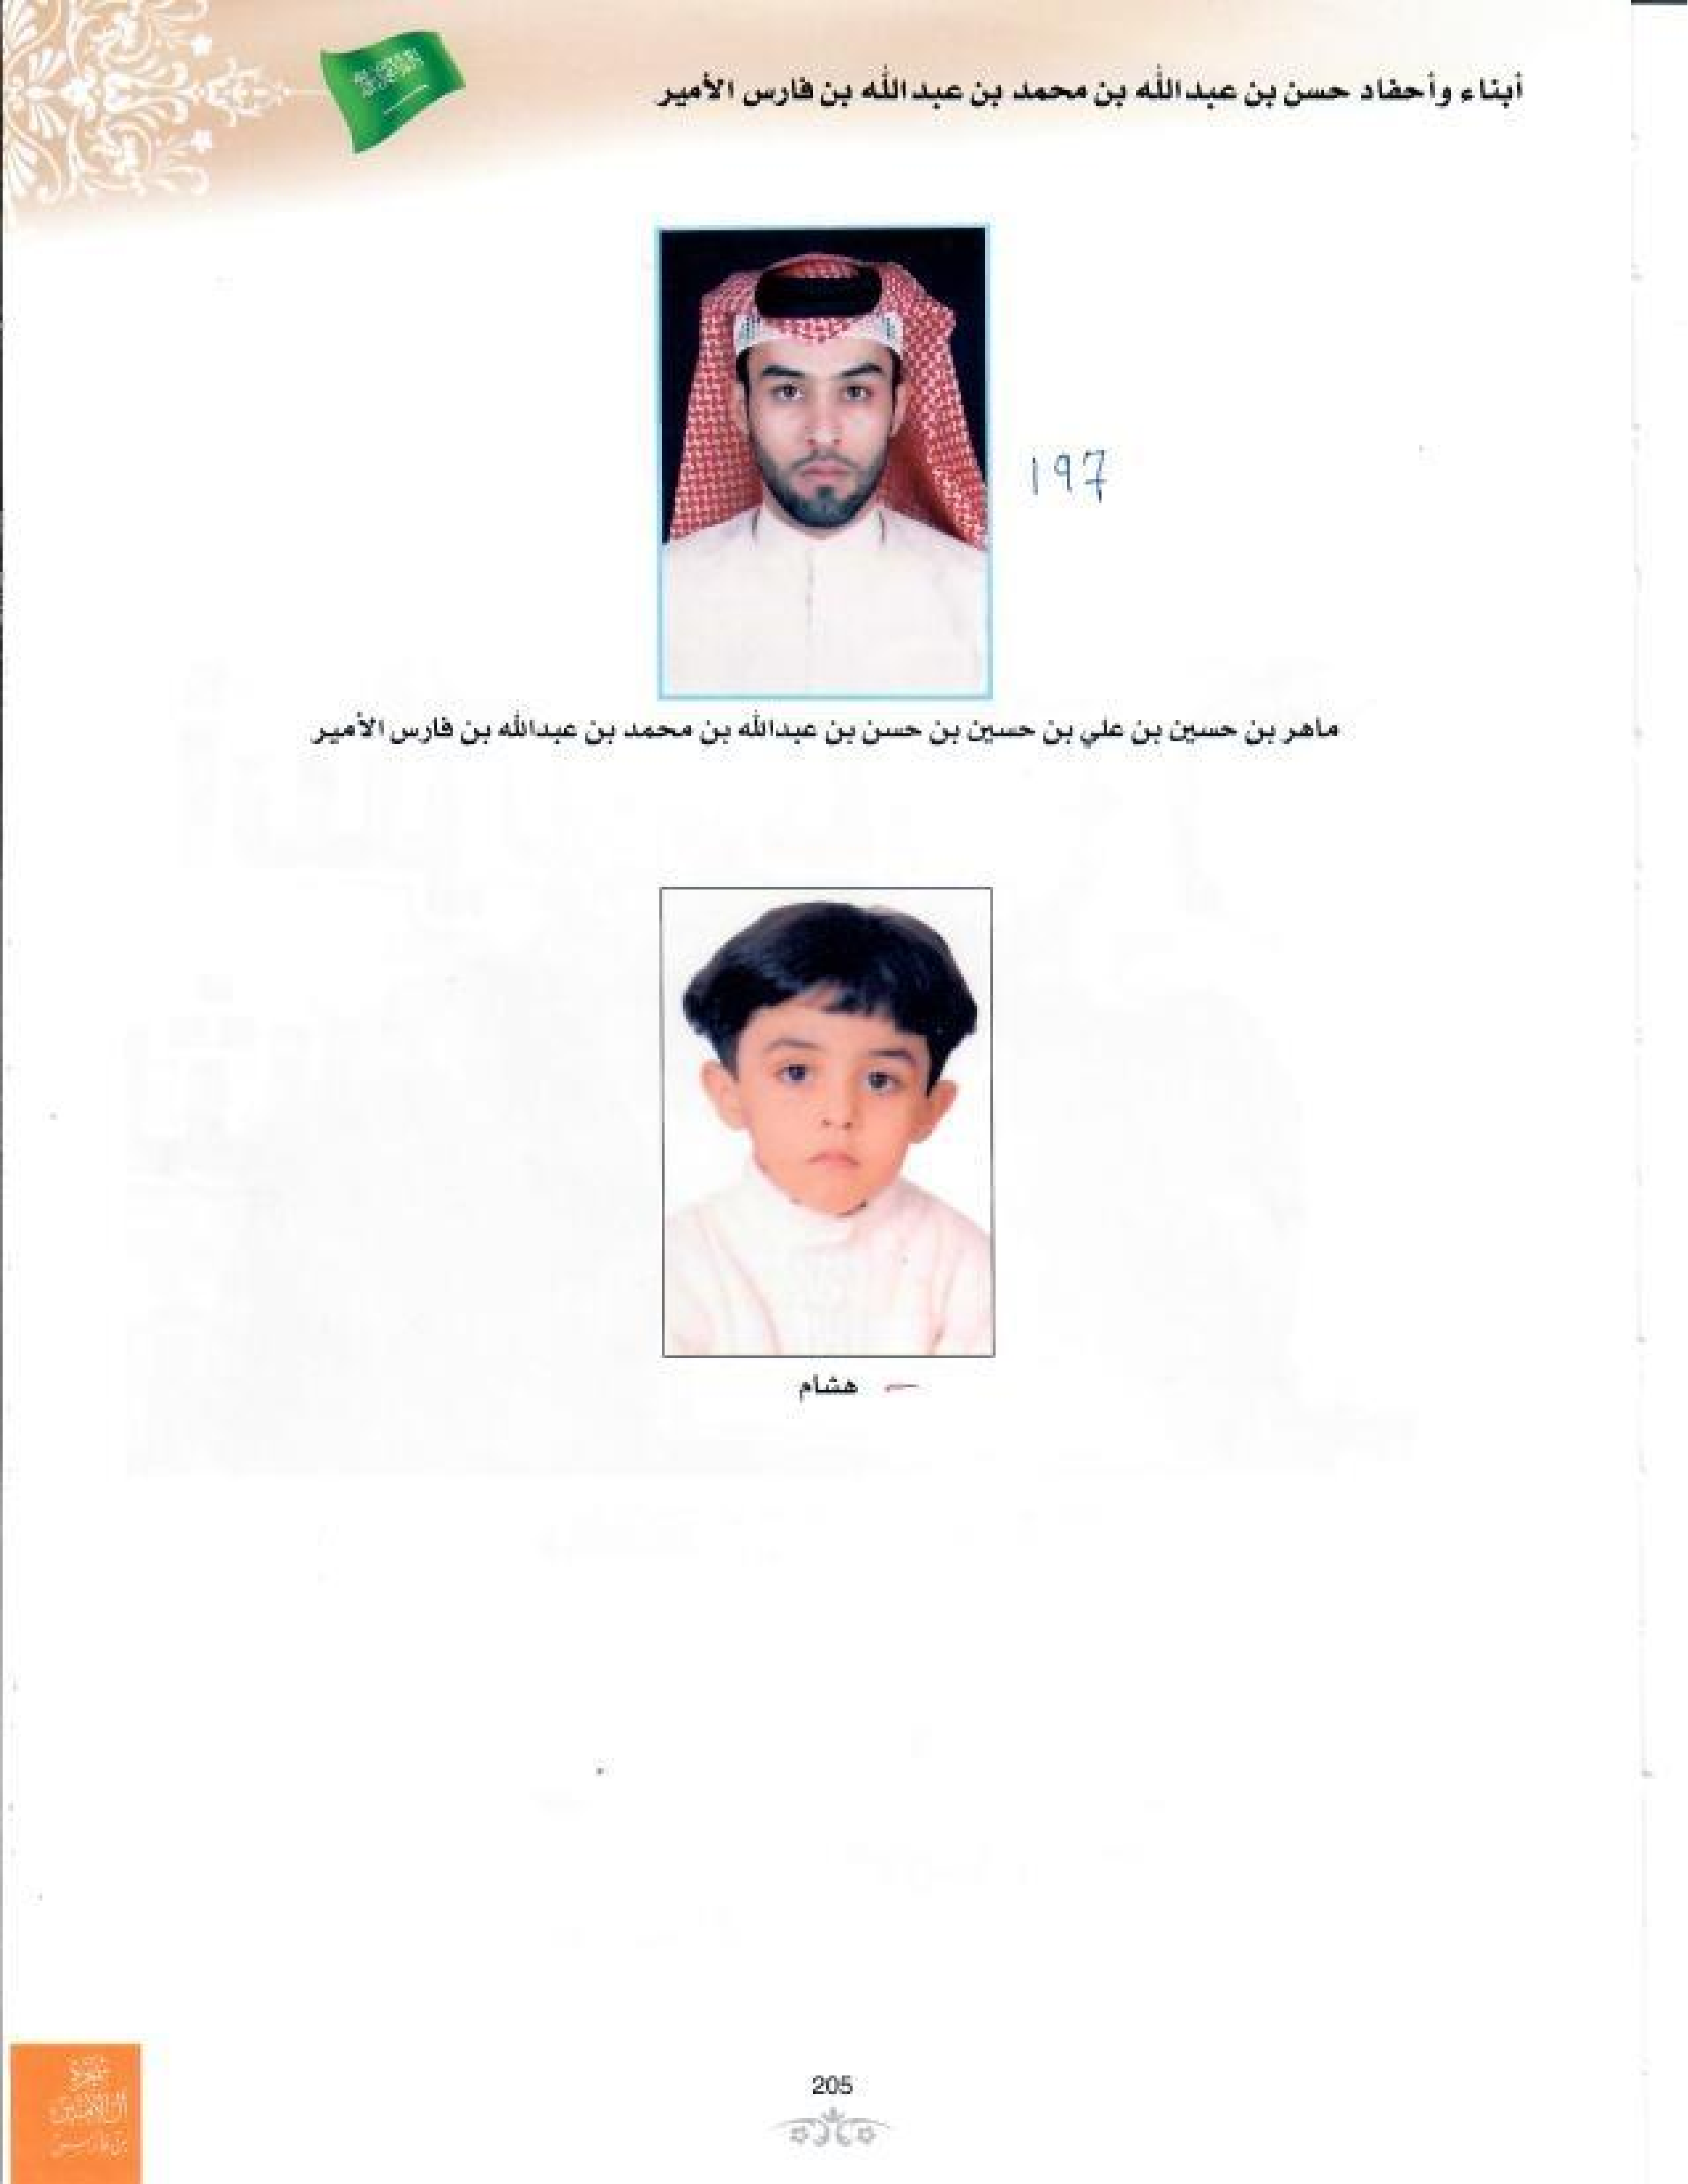 أبناء وأحفاد حسن بن عبد الله بن محمد بن عبد الله بن فارس الأمير
197
ماهر بن حسين بن علي بن حسين بن حسن بن عبدالله بن محمد بن عبدالله بن فارس الأمير
هشام
205
شجرة
آل الأمير
بن فارس